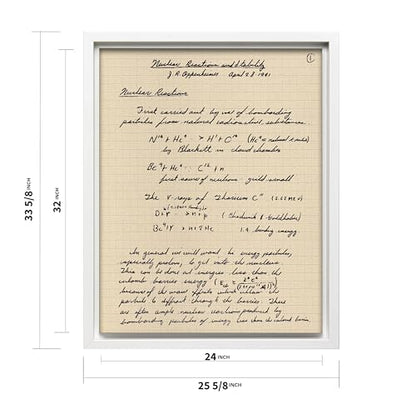 ①
Nuclear Reactions and Stability
J. R. Oppenheimer April 28 1941
Nuclear Reactions
First carried out by use of bombarding
particles from natural radioactive substances.
N¹⁴ + He⁴ > H¹ + O¹⁷ (He⁴ natural)
by Blackett in cloud chamber
Be⁹ + He⁴ C¹² + n
first source of neutrons yield small
The γ rays of Thorium C" (2.62 MeV)
D + γ → n + p (Chadwick & Goldhaber)
Be⁹ + γ → n + 2He 1.4 binding energy
In general we will want to energy particles,
especially protons, to get into the nucleus.
This can be done at energies less than the
coulomb barrier energy
because of the wave effects which allow the
particle to diffract through the barrier. There
are often ample nuclear reactions produced by
bombarding particles of energy less than the coulomb barrier.
33 5/8 INCH
32 INCH
24 INCH
25 5/8 INCH